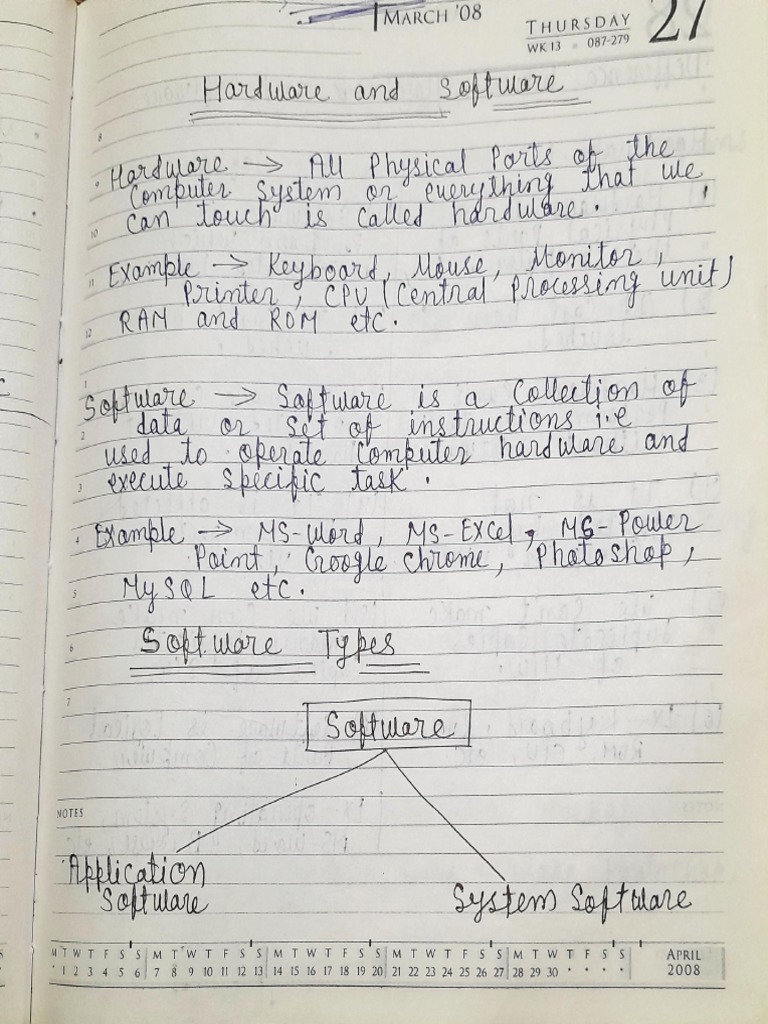 MARCH '08
THURSDAY
WK 13 • 087-279
27
Hardware and Software
8
• Hardware → All Physical Parts of the
Computer System or everything that we
can touch is called hardware.
10
11 Example → Keyboard, Mouse, Monitor,
Printer, CPU (Central Processing unit)
12 RAM and ROM etc.
1
Software → Software is a Collection of
2 data or set of instructions i.e
used to operate Computer hardware and
3 execute specific task.
• Example → MS-Word, MS-Excel, MS-Power
Point, Google Chrome, Photoshop,
5 MySQL etc.
6 Software Types
7
Software
NOTES
Application
Software
System Software
M T W T F S S M T W T F S S M T W T F S S M T W T F S S M T W T F S S APRIL
• 1 2 3 4 5 6 7 8 9 10 11 12 13 14 15 16 17 18 19 20 21 22 23 24 25 26 27 28 29 30 • • • • 2008